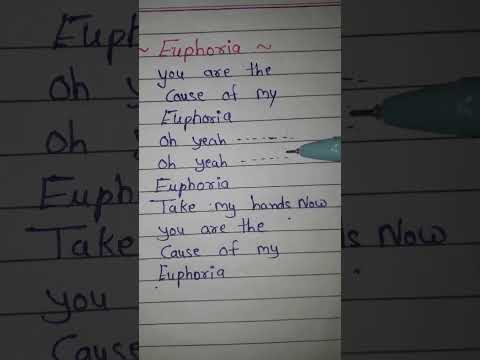 ~ Euphoria ~
you are the
Cause of my
Euphoria
oh yeah ------
oh yeah ------
Euphoria
Take my hands Now
you are the
Cause of my
Euphoria